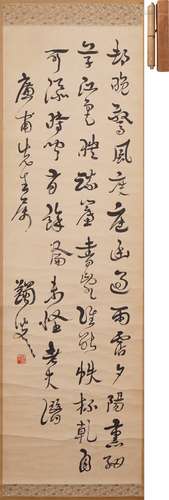 村晚驚風度庭幽過雨霑夕陽熏細
草江色映疏簾書亂誰能帙杯乾自
可添時聞有餘論未怪老夫潛
先生属